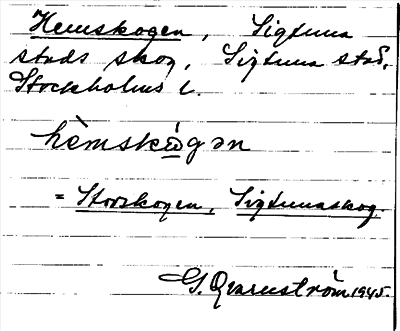 Hemskogen, Sigtuna
stads skog, Sigtuna stad,
Stockholms l.
hèmskὼgən
= Storskogen, Sigtunaskog.
G. Qvarnström 1945.